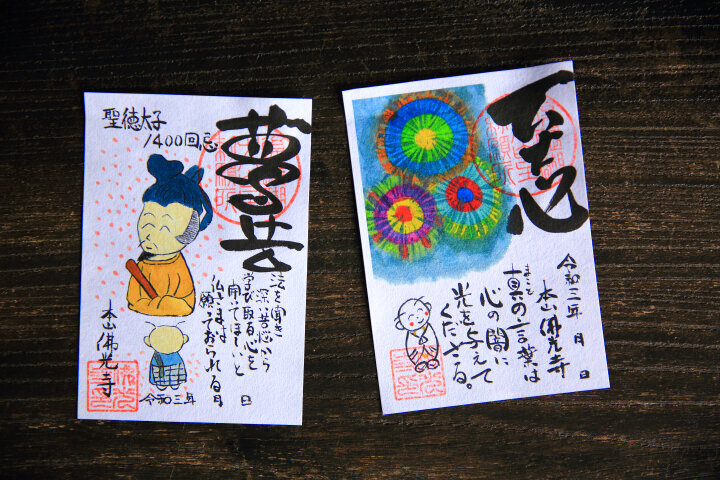 聖徳太子
1400回忌
法を聞き
学び取る心を
開いてほしいと
仏さまは
願っておられる
月 日
令和三年
本山佛光寺
令和三年 月 日
本山佛光寺
まこと
真の言葉は
心の闇に
光を与えて
くださる。